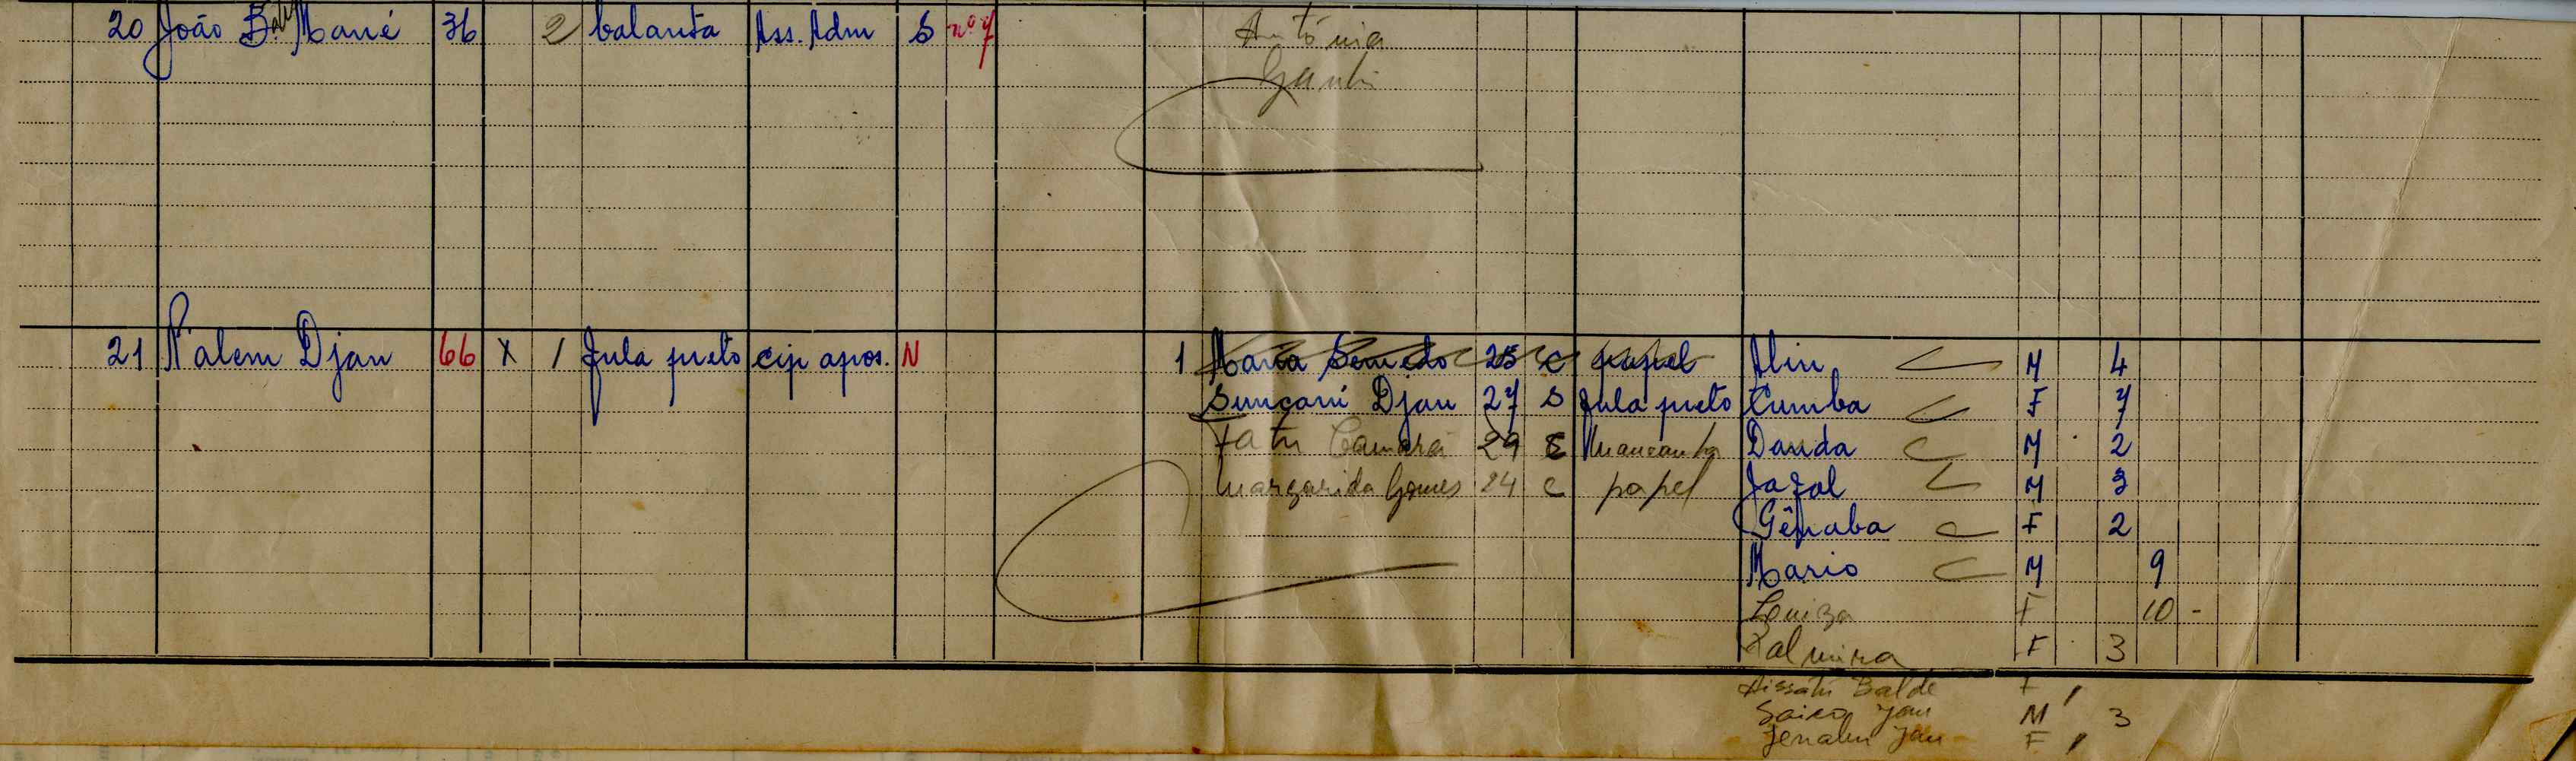 20 João Baly Mané 36 2 balanta Ass. Adm S nº 7 Antónia
Gambi
21 N'alem Djau 66 X 1 fula preto cip apos. N 1 Maria Semedo 25 C papel Aliu M 4
Sunçaru Djau 27 S fula preto Cumba F 7
Fatu Camará 29 C mancanha Dauda M 2
Margarida Gomes 24 C papel Jagal M 3
Gênaba F 2
Mario M 9
Louiza F 10 -
Palmira F 3
Aissatu Balde F ,
Saico Jau M 3
Jenabu Jau F ,